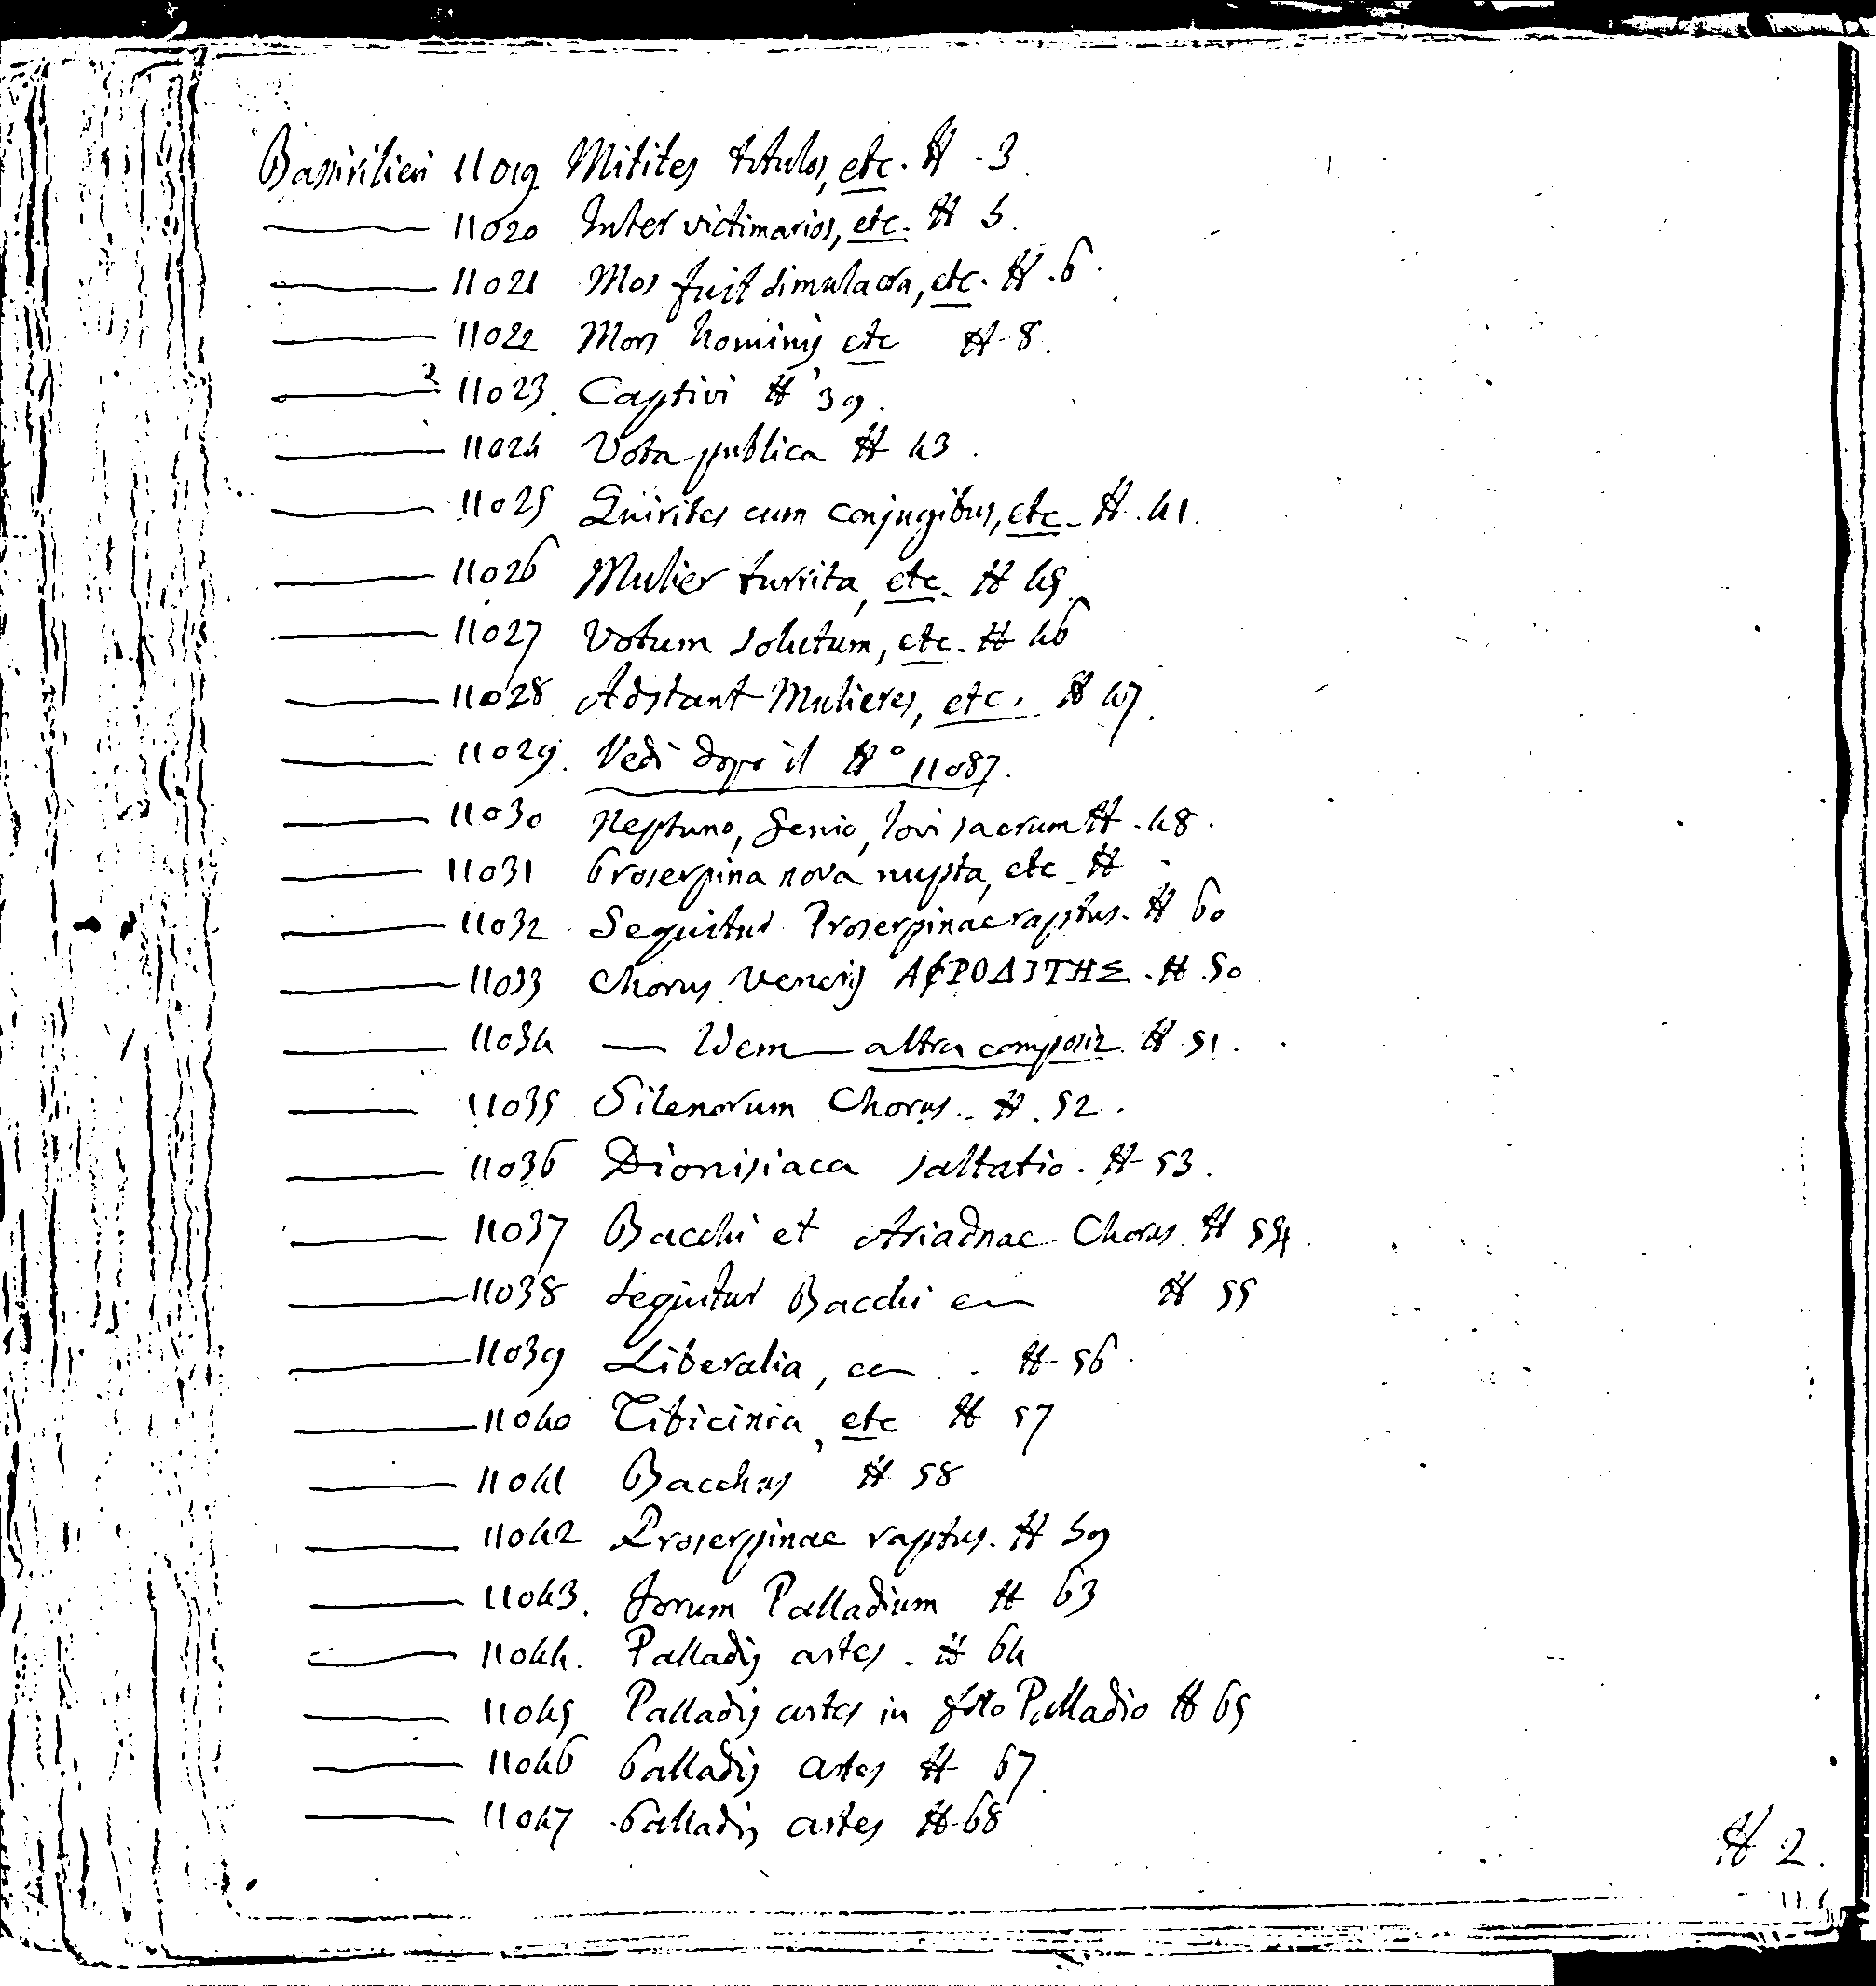 Bassirilievi 11019 Mitites titulos, etc. N. 3
11020 Inter victimarios, etc. N 5.
11021 Mos fuit simulacra, etc. N. 6.
11022 Mors hominis etc N 8.
11023. Captivi N 39.
11024 Vota publica N 43.
11025 Quirites cum conjugibus, etc. N. 41.
11026 Mulier turrita, etc. N 45.
11027 Votum solutum, etc. N 46
11028 Adstant Mulieres, etc. N 47.
11029. Vedi dopo il N° 11087.
11030 Neptuno, Genio, Iovi sacrum N. 48.
11031 Proserpina nova nupta, etc. N
11032 Sequitur Proserpinae raptus. N 60
11033 Chorus Veneris ΑΦΡΟΔΙΤΗΣ. N. 50
11034 — Idem — altra composiz. N 51.
11035 Silenorum Chorus. N. 52.
11036 Dionisiaca saltatio. N 53.
11037 Bacchi et Ariadnae Chorus N 54.
11038 Sequitur Bacchi N 55
11039 Liberalia, N 56.
11040 Tibicinia, etc N 57
11041 Bacchus N 58
11042 Proserpinae raptus. N 59
11043. Forum Palladium N 63
11044. Palladis artes. N 64
11045 Palladis artes in foro Palladio N 65
11046 Palladis artes N 67
11047 Palladis artes N 68
N 2.